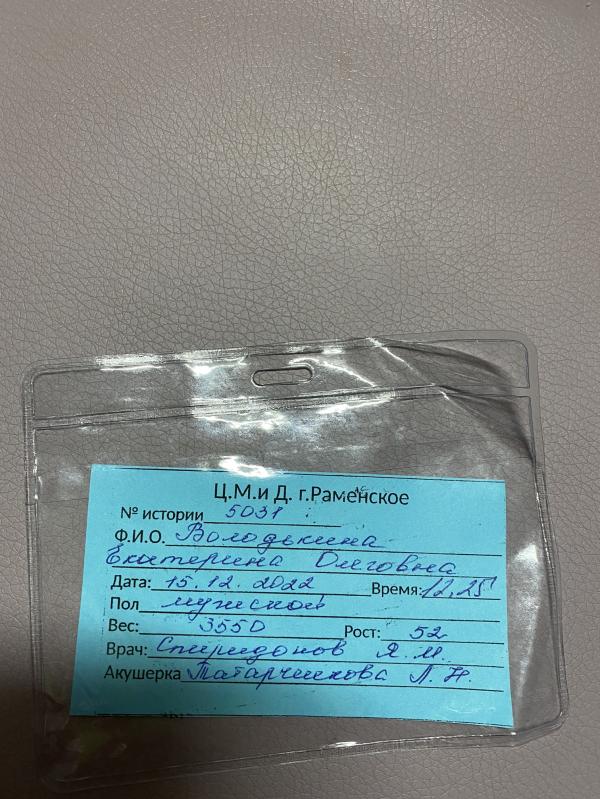 Ц.М.и Д. г.Раменское
№ истории 5031
Ф.И.О. Володькина
Екатерина Олеговна
Дата: 15.12.2022 Время: 12.25
Пол мужской
Вес: 3550 Рост: 52
Врач: Спиридонов Я.М.
Акушерка Татарчикова Л.Н.